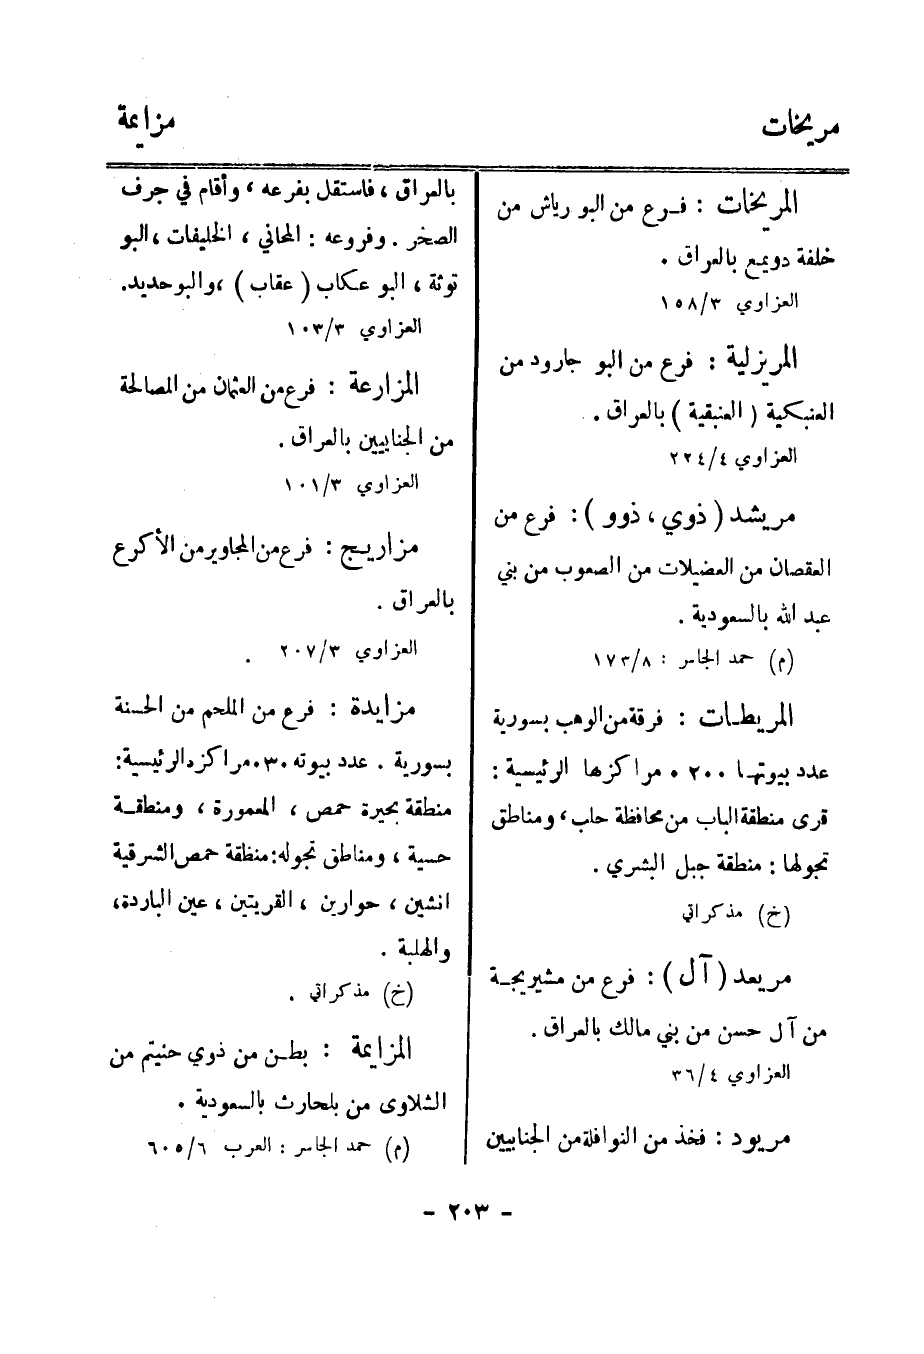 مريخات
مزايمة
المريخات : فـرع من البو رياش من
خلفة دويمع بالعراق .
العزاوي ١٥٨/٣
المريزلية : فرع من البو جارود من
العنبكية ( العنبقية ) بالعراق .
العزاوي ٢٢٤/٤
مريشد ( ذوي ، ذوو ) : فرع من
العقصان من العضيلات من الصعوب من بني
عبد الله بالسعودية .
(م) حمد الجاسر : ١٧٣/٨
المريطـات : فرقة من الوهب بسورية
عدد بيوتهـا ٢٠٠ . مراكزها الرئيسية :
قرى منطقة الباب من محافظة حلب ، ومناطق
تجولها : منطقة جبل البشري .
(خ) مذكراتي
مريعد ( آل ) : فرع من مشيريجـة
من آل حسن من بني مالك بالعراق .
العزاوي ٣٦/٤
مريود : فخذ من النوافلة من الجنابيين
بالعراق ، فاستقل بفرعه ، وأقام في جرف
الصخر . وفروعه : المحاني ، الخليفات ، البو
توثة ، البو عكاب ( عقاب ) ، والبو حديد.
العزاوي ١٠٣/٣
المزارعة : فرع من العثمان من المصالحة
من الجنابيين بالعراق .
العزاوي ١٠١/٣
مزاريـج : فرع من المجاوير من الأكرع
بالعراق .
العزاوي ٢٠٧/٣ .
مزايدة : فرع من الملحم من الحسنة
بسورية . عدد بيوته ٣٠٠. مراكزه الرئيسية:
منطقة بحيرة حمص ، المعمورة ، ومنطقـة
حسية ، ومناطق تجوله: منطقة حمص الشرقية
انشين ، حوارين ، القريتين ، عين الباردة،
والهلبة .
(خ) مذكراتي .
المزايمة : بطـن من ذوي حنيتم من
الشلاوى من بلحارث بالسعودية .
(م) حمد الجاسر : العرب ٦٠٥/٦
- ٢٠٣ -